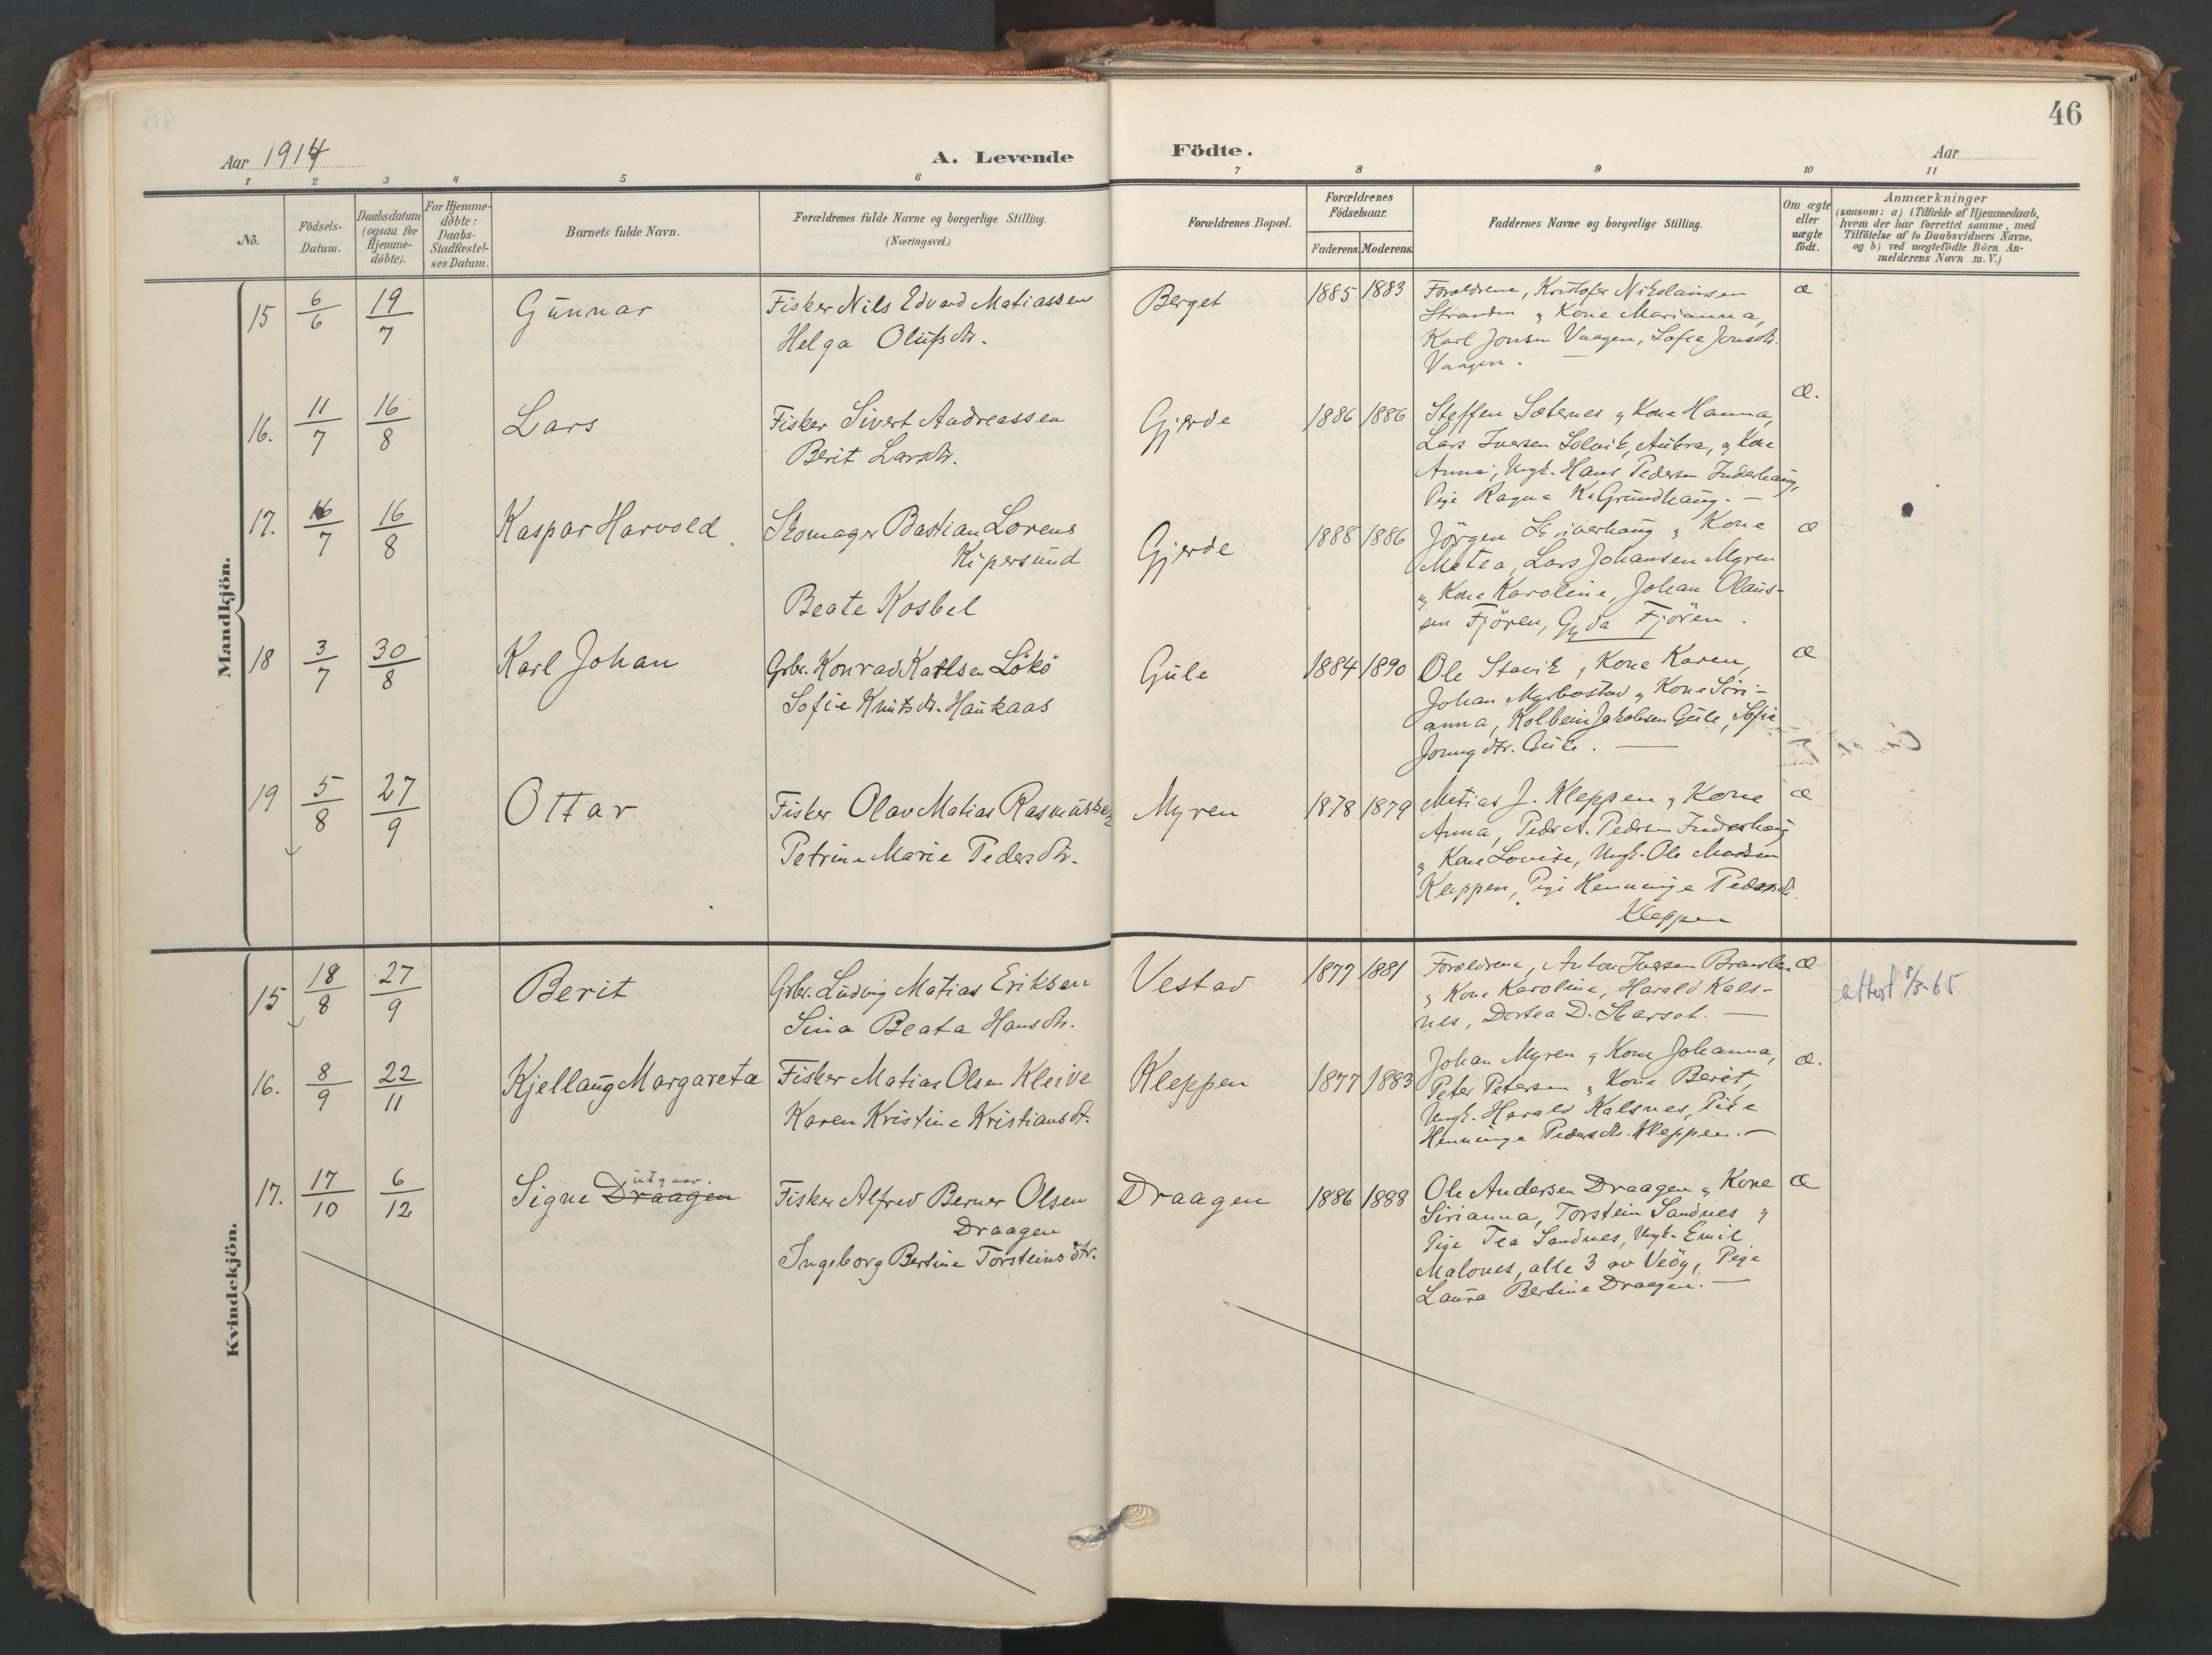 46
Aar 1914
A. Levende Födte.
Aar
1 2 3 4 5 6 7 8 9 10 11
No.
Födsels-
Datum.
Daabsdatum
(ogsaa for
Hjemme-
döbte).
For Hjemme-
döbte:
Daabs-
Stadfæstel-
ses Datum.
Barnets fulde Navn.
Forældrenes fulde Navne og borgerlige Stilling.
(Næringsvei.)
Forældrenes Bopæl.
Forældrenes
Födselsaar.
Faderens. Moderens.
Faddernes Navne og borgerlige Stilling.
Om ægte
eller
uægte
födt.
Anmærkninger
(saasom: a) i Tilfælde af Hjemmedaab,
hvem der har forrettet samme, med
Tilföielse af to Daabsvidners Navne,
og b) ved uægtefödte Börn An-
melderens Navn m.V.)
Mandkjön.
15 6/6 19/7 Gunnar
Fisker Nils Edvard Matiassen
Helga Olufsdtr.
Berget 1885 1883
Forældrene, Kristofer Nikolaisen
Stranden & Kone Marianna,
Karl Jonsen Vaagen, Sofie Jonsdtr.
Vaagen. —
æ
16. 11/7 16/8 Lars
Fisker Sivert Andreassen
Berit Larsdtr.
Gjerde 1886 1886
Steffen Sæternes & Kone Hanna,
Lars Iversen Solvik, Aukra, & Kone
Anna, Ungk. Hans Pedersen Inderhaug,
Pige Ragna K. Grundhaug. —
æ.
17. 16/7 16/8 Kaspar Harvold
Skomager Bastian Lorens
Kipersund
Beate Kosbel
Gjerde 1888 1886
Jörgen Skiverhaug & Kone
Metea, Lars Johansen Myren
& Kone Karoline, Johan Olaus-
sen Fjören, Gyda Fjören.
æ
18 3/7 30/8 Karl Johan
Gbr. Konrad Karlsen Lökö
Sofie Knutsdtr. Haukaas
Gule 1884 1890
Ole Stavik & Kone Karen,
Johan Myrbostad & Kone Siri-
anna, Kolbein Jakobsen Gule, Sofie
dtr. Gule. —
æ
19 5/8 27/9 Ottar
Fisker Olav Matias Rasmussen
Petrine Marie Pedersdtr.
Myren 1878 1879
Matias J. Kleppen & Kone
Anna, Peder A. Pedersen Inderhaug
& Kone Lovise, Ungk. Ole Madsen
Kleppen, Pige Henninge Pedersdtr.
Kleppen
æ
Kvindekjön.
15 18/8 27/9 Berit
Gbr. Ludvig Matias Eriksen
Sina Beata Hansdtr.
Vestad 1877 1881
Forældrene, Anton Iversen
& Kone Karoline, Harald Kals-
nes, Dortea D. Skarset. —
æ
attest 8/3-65
16. 8/9 22/11 Kjellaug Margareta
Fisker Matias Olsen Kleive
Karen Kristine Kristiansdt.
Kleppen 1877 1883
Johan Myren & Kone Johanna,
Peter Petersen & Kone Berit,
Ungk. Harald Kalsnes, Pike
Henninge Pedersdtr. Kleppen. —
æ.
17. 17/10 6/12 Signe Draagen
utgaar.
Fisker Alfred Berner Olsen
Draagen
Ingeborg Bertine Torsteinsdtr.
Draagen 1886 1888
Ole Andersen Draagen & Kone
Sirianna, Torstein Sandnes &
Pige Tea Sandnes, Ungk. Emil
Malones, alle 3 av Veöy, Pige
Laura Bertine Draagen. —
æ